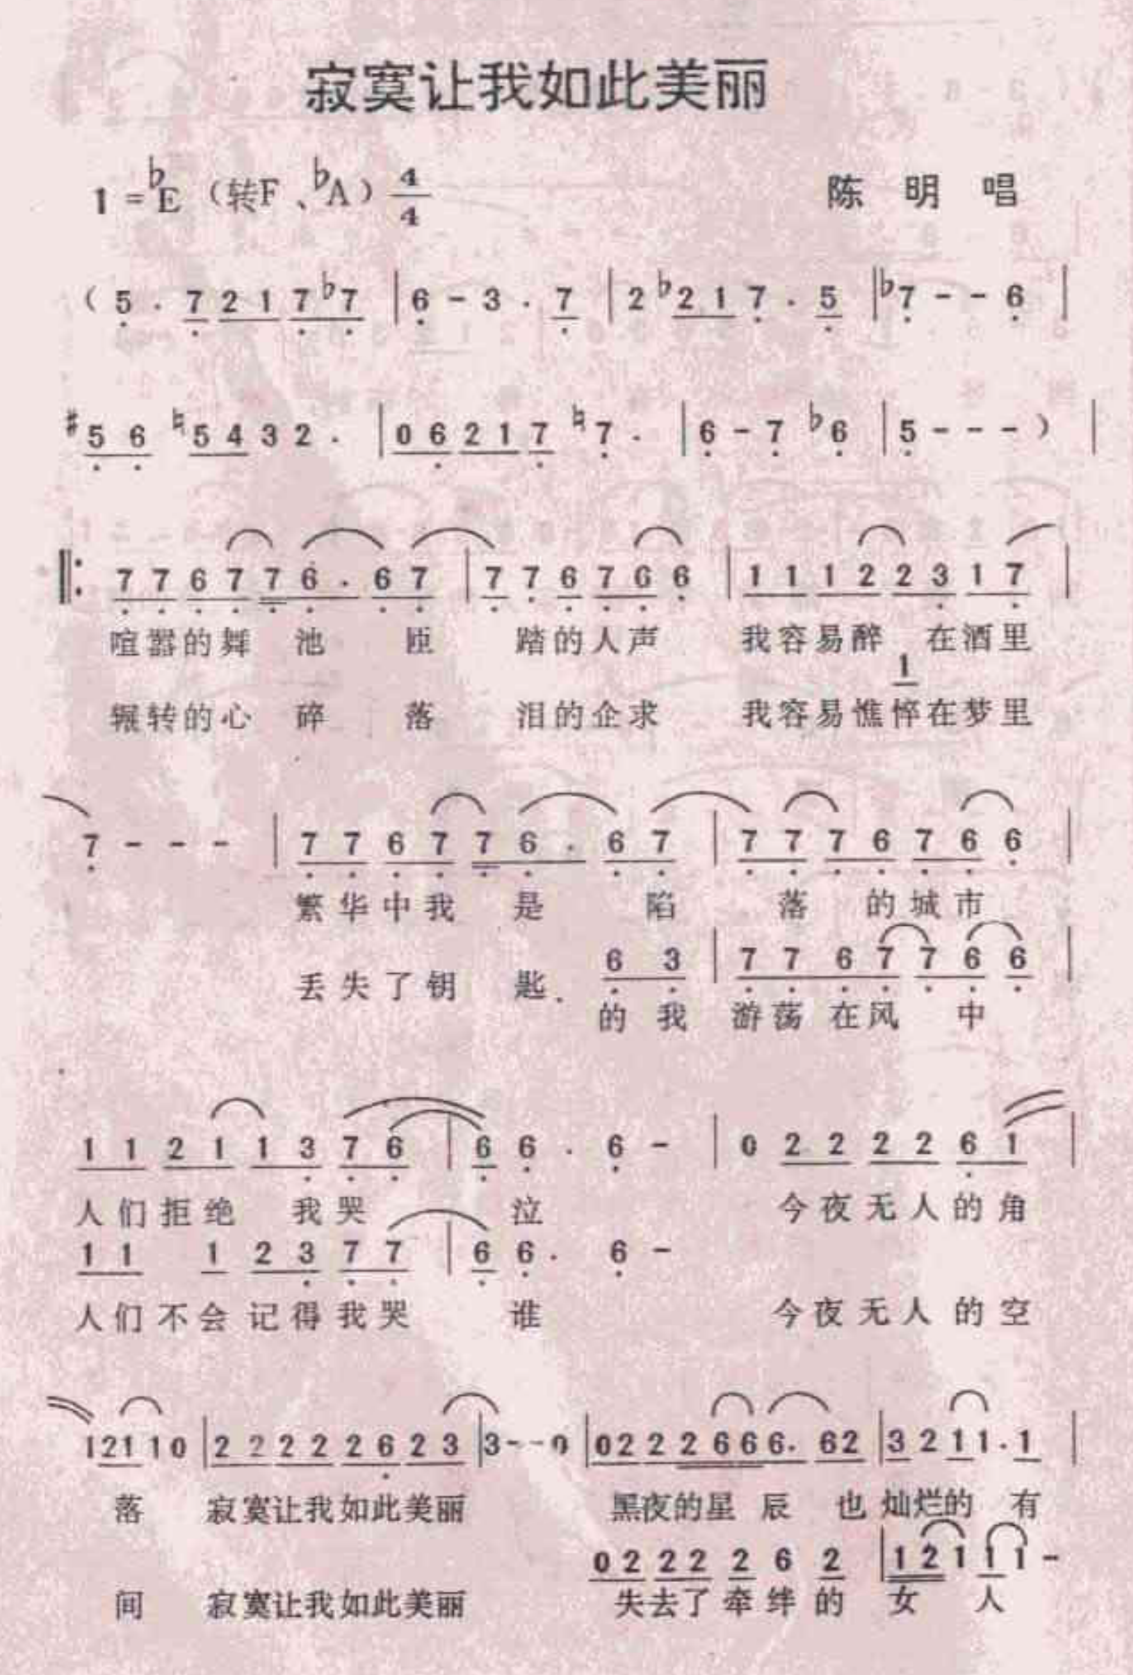 寂寞让我如此美丽
1=♭E（转F、♭A）4/4 陈 明 唱
（5 . 7 2 1 7 ♭7 | 6 - 3 . 7 | 2 ♭2 1 7 . 5 | ♭7 - - 6 |
♯5 6 ♮5 4 3 2 . | 0 6 2 1 7 ♮7 . | 6 - 7 ♭6 | 5 - - - ） |
‖: 7 7 6 7 7 6 . 6 7 | 7 7 6 7 6 6 | 1 1 1 2 2 3 1 7 |
喧嚣的舞 池 匝 踏的人声 我容易醉 在酒里
1
辗转的心 碎 落 泪的企求 我容易憔悴在梦里
7 - - - | 7 7 6 7 7 6 . 6 7 | 7 7 7 6 7 6 6 |
繁华中我 是 陷 落 的城市
6 3 | 7 7 6 7 7 6 6 |
丢失了钥 匙
的 我 游荡 在风 中
1 1 2 1 1 3 7 6 | 6 6 . 6 - | 0 2 2 2 2 6 1 |
人们拒绝 我哭 泣 今夜无人的角
1 1 1 2 3 7 7 | 6 6 . 6 -
人们不会记得我哭 谁 今夜无人的空
1 2 1 1 0 | 2 2 2 2 2 6 2 3 | 3 - - 0 | 0 2 2 2 6 6 6 . 6 2 | 3 2 1 1 . 1 |
落 寂寞让我如此美丽 黑夜的星 辰 也 灿烂的 有
0 2 2 2 2 6 2 | 1 2 1 1 1 -
间 寂寞让我如此美丽 失去了牵绊的 女 人